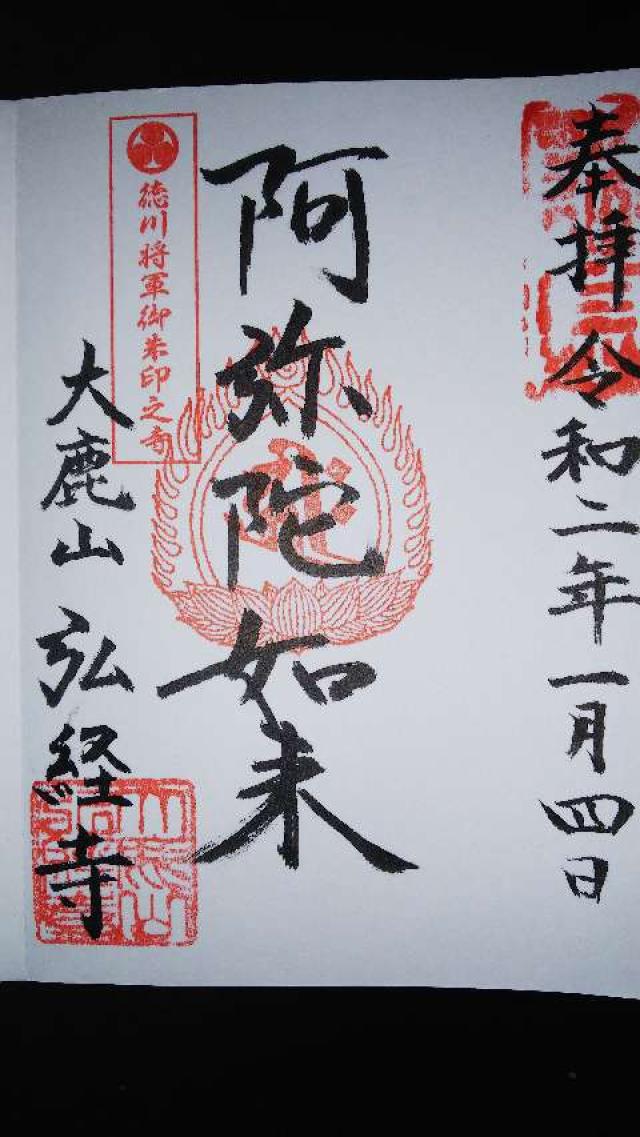 奉拝 令和二年一月四日
阿弥陀如来
徳川将軍御朱印之寺
大鹿山 弘経寺